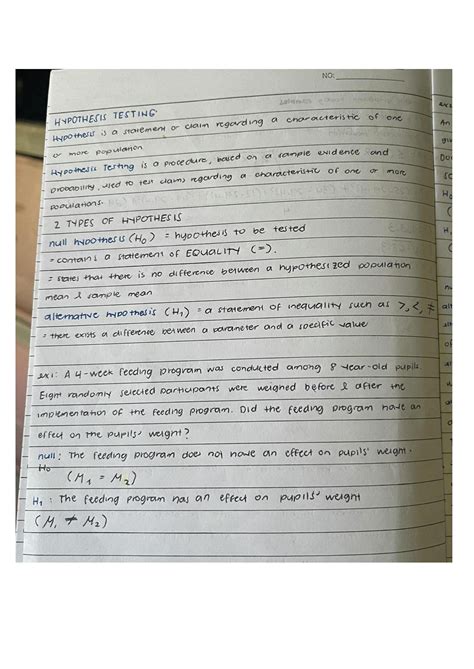 NO:
HYPOTHESIS TESTING
- Hypothesis is a statement or claim regarding a characteristic of one
or more population
- Hypothesis Testing is a procedure, based on a sample evidence and
probability, used to test claims regarding a characteristic of one or more
populations.
2 TYPES OF HYPOTHESIS
null hypothesis (H₀) = hypothesis to be tested
= contains a statement of EQUALITY (=).
= states that there is no difference between a hypothesized population
mean & sample mean
alternative hypothesis (H₁) = a statement of inequality such as >, <, ≠
= there exists a difference between a parameter and a specific value
ex1: A 4-week feeding program was conducted among 8 year-old pupils.
Eight randomly selected participants were weighed before & after the
implementation of the feeding program. Did the feeding program have an
effect on the pupils' weight?
null: The feeding program does not have an effect on pupils' weight.
H₀
(M₁ = M₂)
H₁: The feeding program has an effect on pupils' weight
(M₁ ≠ M₂)